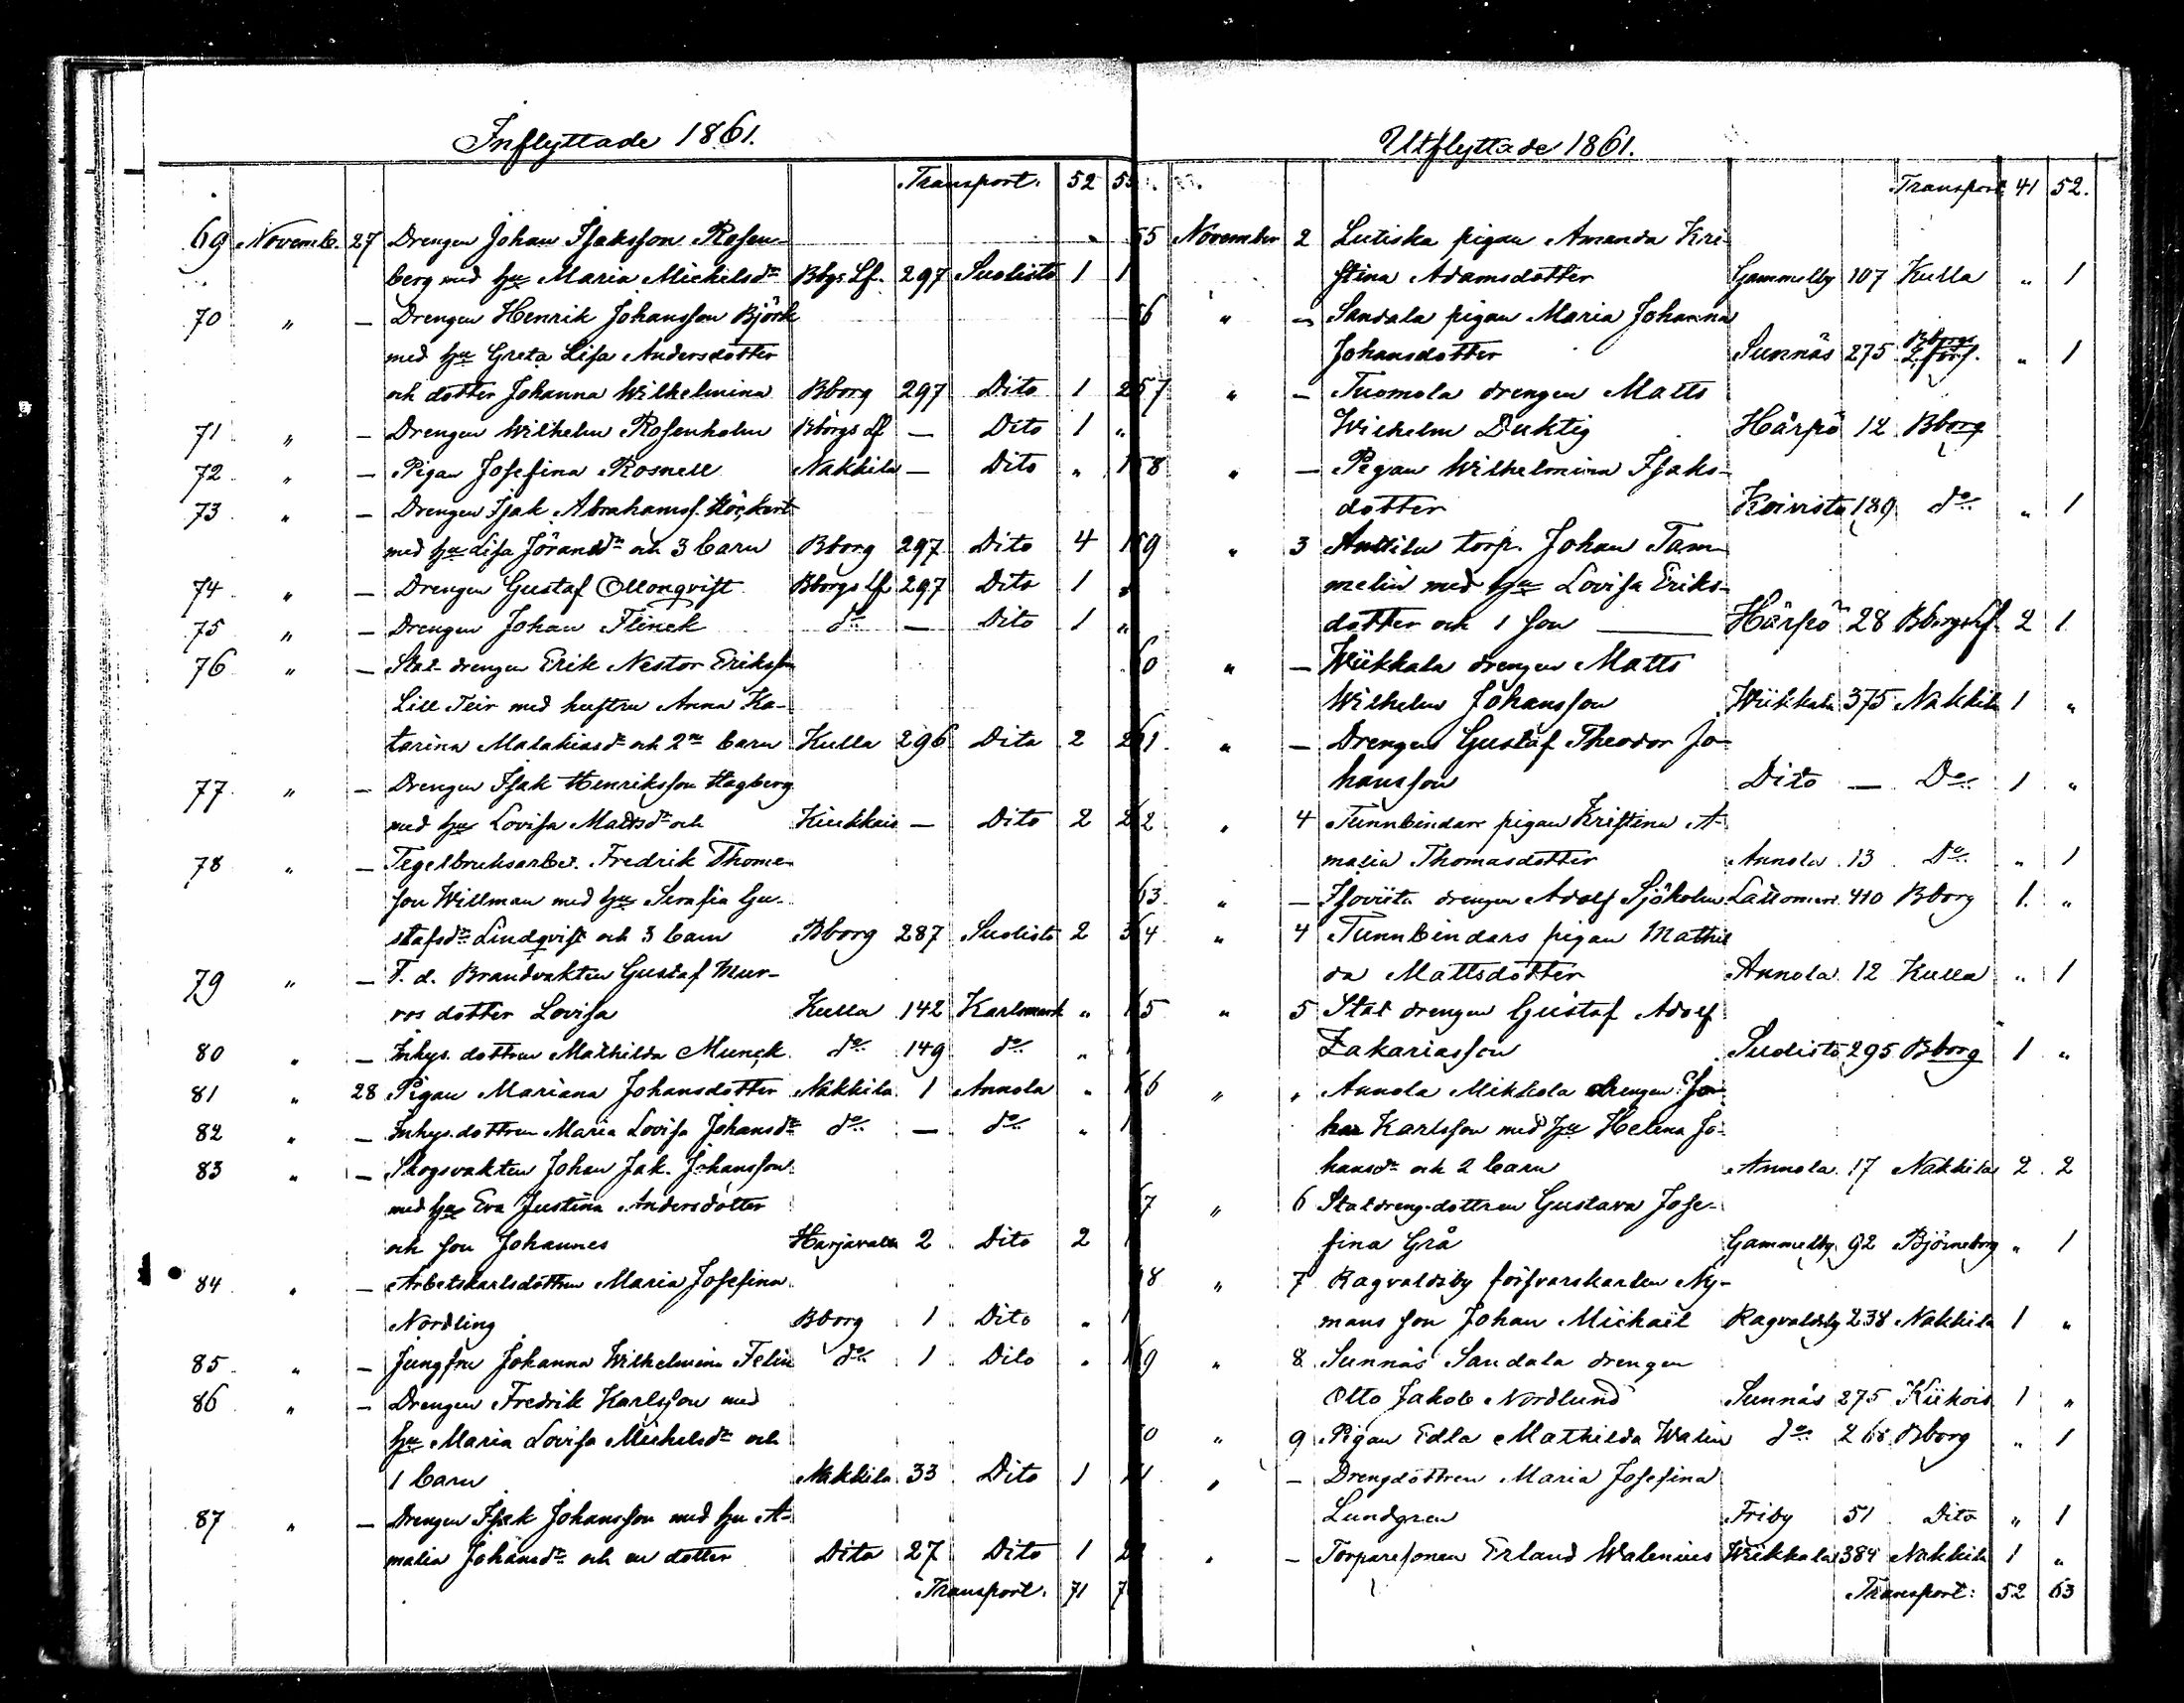 Inflyttade 1861.
Transport. 52
69 Novemb. 27 Drengen Johan Isaksson Rosen-
berg med hu Maria Michelsdr Bbgs Lf. 297 Suolisto 1 1
70 " — Drengen Henrik Johansson Björk
med hu Greta Lisa Andersdotter
och dotter Johanna Wilhelmina Bborg 297 Dito 1 2
71 " — Drengen Wilhelm Rosenholm Bborgs lf — Dito 1 "
72 " — Pigan Josefina Rosnell Nakkila — Dito " 1
73 " — Drengen Isak Abrahamss.
med hu Lisa Jöransdr och 3 barn Bborg 297 Dito 4 1
74 " — Drengen Gustaf Ollonqvist Bborgs Lf 297 Dito 1 "
75 " — Drengen Johan Flinck do — Dito 1 "
76 " — Stat-drengen Erik Nestor Eriksson
Lill Teir med hustru Anna Ka-
tarina Malakiasdr och 2ne barn Kulla 296 Dito 2 2
77 " — Drengen Isak Henriksson Hagberg
med hu Lovisa Mattsdr och Kiukkais — Dito 2 2
78 " — Tegelbruksarbet. Fredrik Thomas
son Willman med hu Serafia Gu-
stafsdr Lindqvist och 3 barn Bborg 287 Suolisto 2 3
79 " — F. d. Brandvakten Gustaf Mur-
ros dotter Lovisa Kulla 142 Karlsmark " 1
80 " — Inhys. dottren Mathilda Munck do 149 do " 1
81 " 28 Pigan Mariana Johansdotter Nakkila 1 Annola " 1
82 " — Inhys. dottren Maria Lovisa Johansdr do — do " 1
83 " — Skogsvakten Johan Jak. Johansson
med hu Eva Justina Andersdotter
och son Johannes Harjavalta 2 Dito 2 1
84 " — Arbetskarlsdottren Maria Josefina
Nordling Bborg 1 Dito " 1
85 " — Jungfru Johanna Wilhelmina Felin do 1 Dito " 1
86 " — Drengen Fredrik Karlsson med
hu Maria Lovisa Michelsdr och
1 barn Nakkila 33 Dito 1
87 " — Drengen Isak Johansson med hu A-
malia Johansdr och en dotter Dito 27 Dito 1 2
Transport. 71
Utflyttade 1861.
Transport 41 52.
55 November 2 Lutiska pigan Amanda Kri-
stina Adamsdotter Gammelby 107 Kulla " 1
56 " — Sandala pigan Maria Johanna
Johansdotter Sunnäs 275 Bborgs L. förs. " 1
57 " — Tuomola drengen Matts
Wilhelm Duktig Härpö 12 Bborg
58 " — Pigan Wilhelmina Isaks-
dotter Koivisto 189 do " 1
59 " 3 Anttila torp. Johan Tam-
melin med hu Lovisa Eriks-
dotter och 1 son — Härpö 28 Bborgs Lf. 2 1
60 " — Wiikkala drengen Matts
Wilhelm Johansson Wiikkala 375 Nakkila 1 "
61 " — Drengen Gustaf Theodor Jo-
hansson Dito — Do 1 "
62 " 4 Tunnbindare pigan Kristina A-
malia Thomasdotter Annola 13 Do " 1
63 " — Isoviita drengen Adolf Sjöholm Lattomeri 410 Bborg 1 "
64 " 4 Tunnbindars pigan Mathil
da Mattsdotter Annola 12 Kulla " 1
65 " 5 Stat drengen Gustaf Adolf
Zakariasson Suolisto 295 Bborg 1 "
66 " " Annola Mikkola drengen Jo-
han Karlsson med hu Helena Jo-
hansdr och 2 barn Annola 17 Nakkila 2 2
67 " 6 Statdreng-dottren Gustava Jose-
fina Grå Gammelby 92 Björneborg " 1
68 " 7 Ragvaldsby försvarskarlen Ny-
mans son Johan Michaël Ragvaldsby 238 Nakkila 1 "
69 " 8 Sunnäs Sandala drengen
Otto Jakob Nordlund Sunnäs 275 Kiikois 1 "
70 " 9 Pigan Edla Mathilda Walin do 268 Bborg " 1
71 " — Drengdottren Maria Josefina
Lundgren Friby 51 Dito " 1
" — Torparesonen Erland Walenius Wiikkala 384 Nakkila 1 "
Transport: 52 63